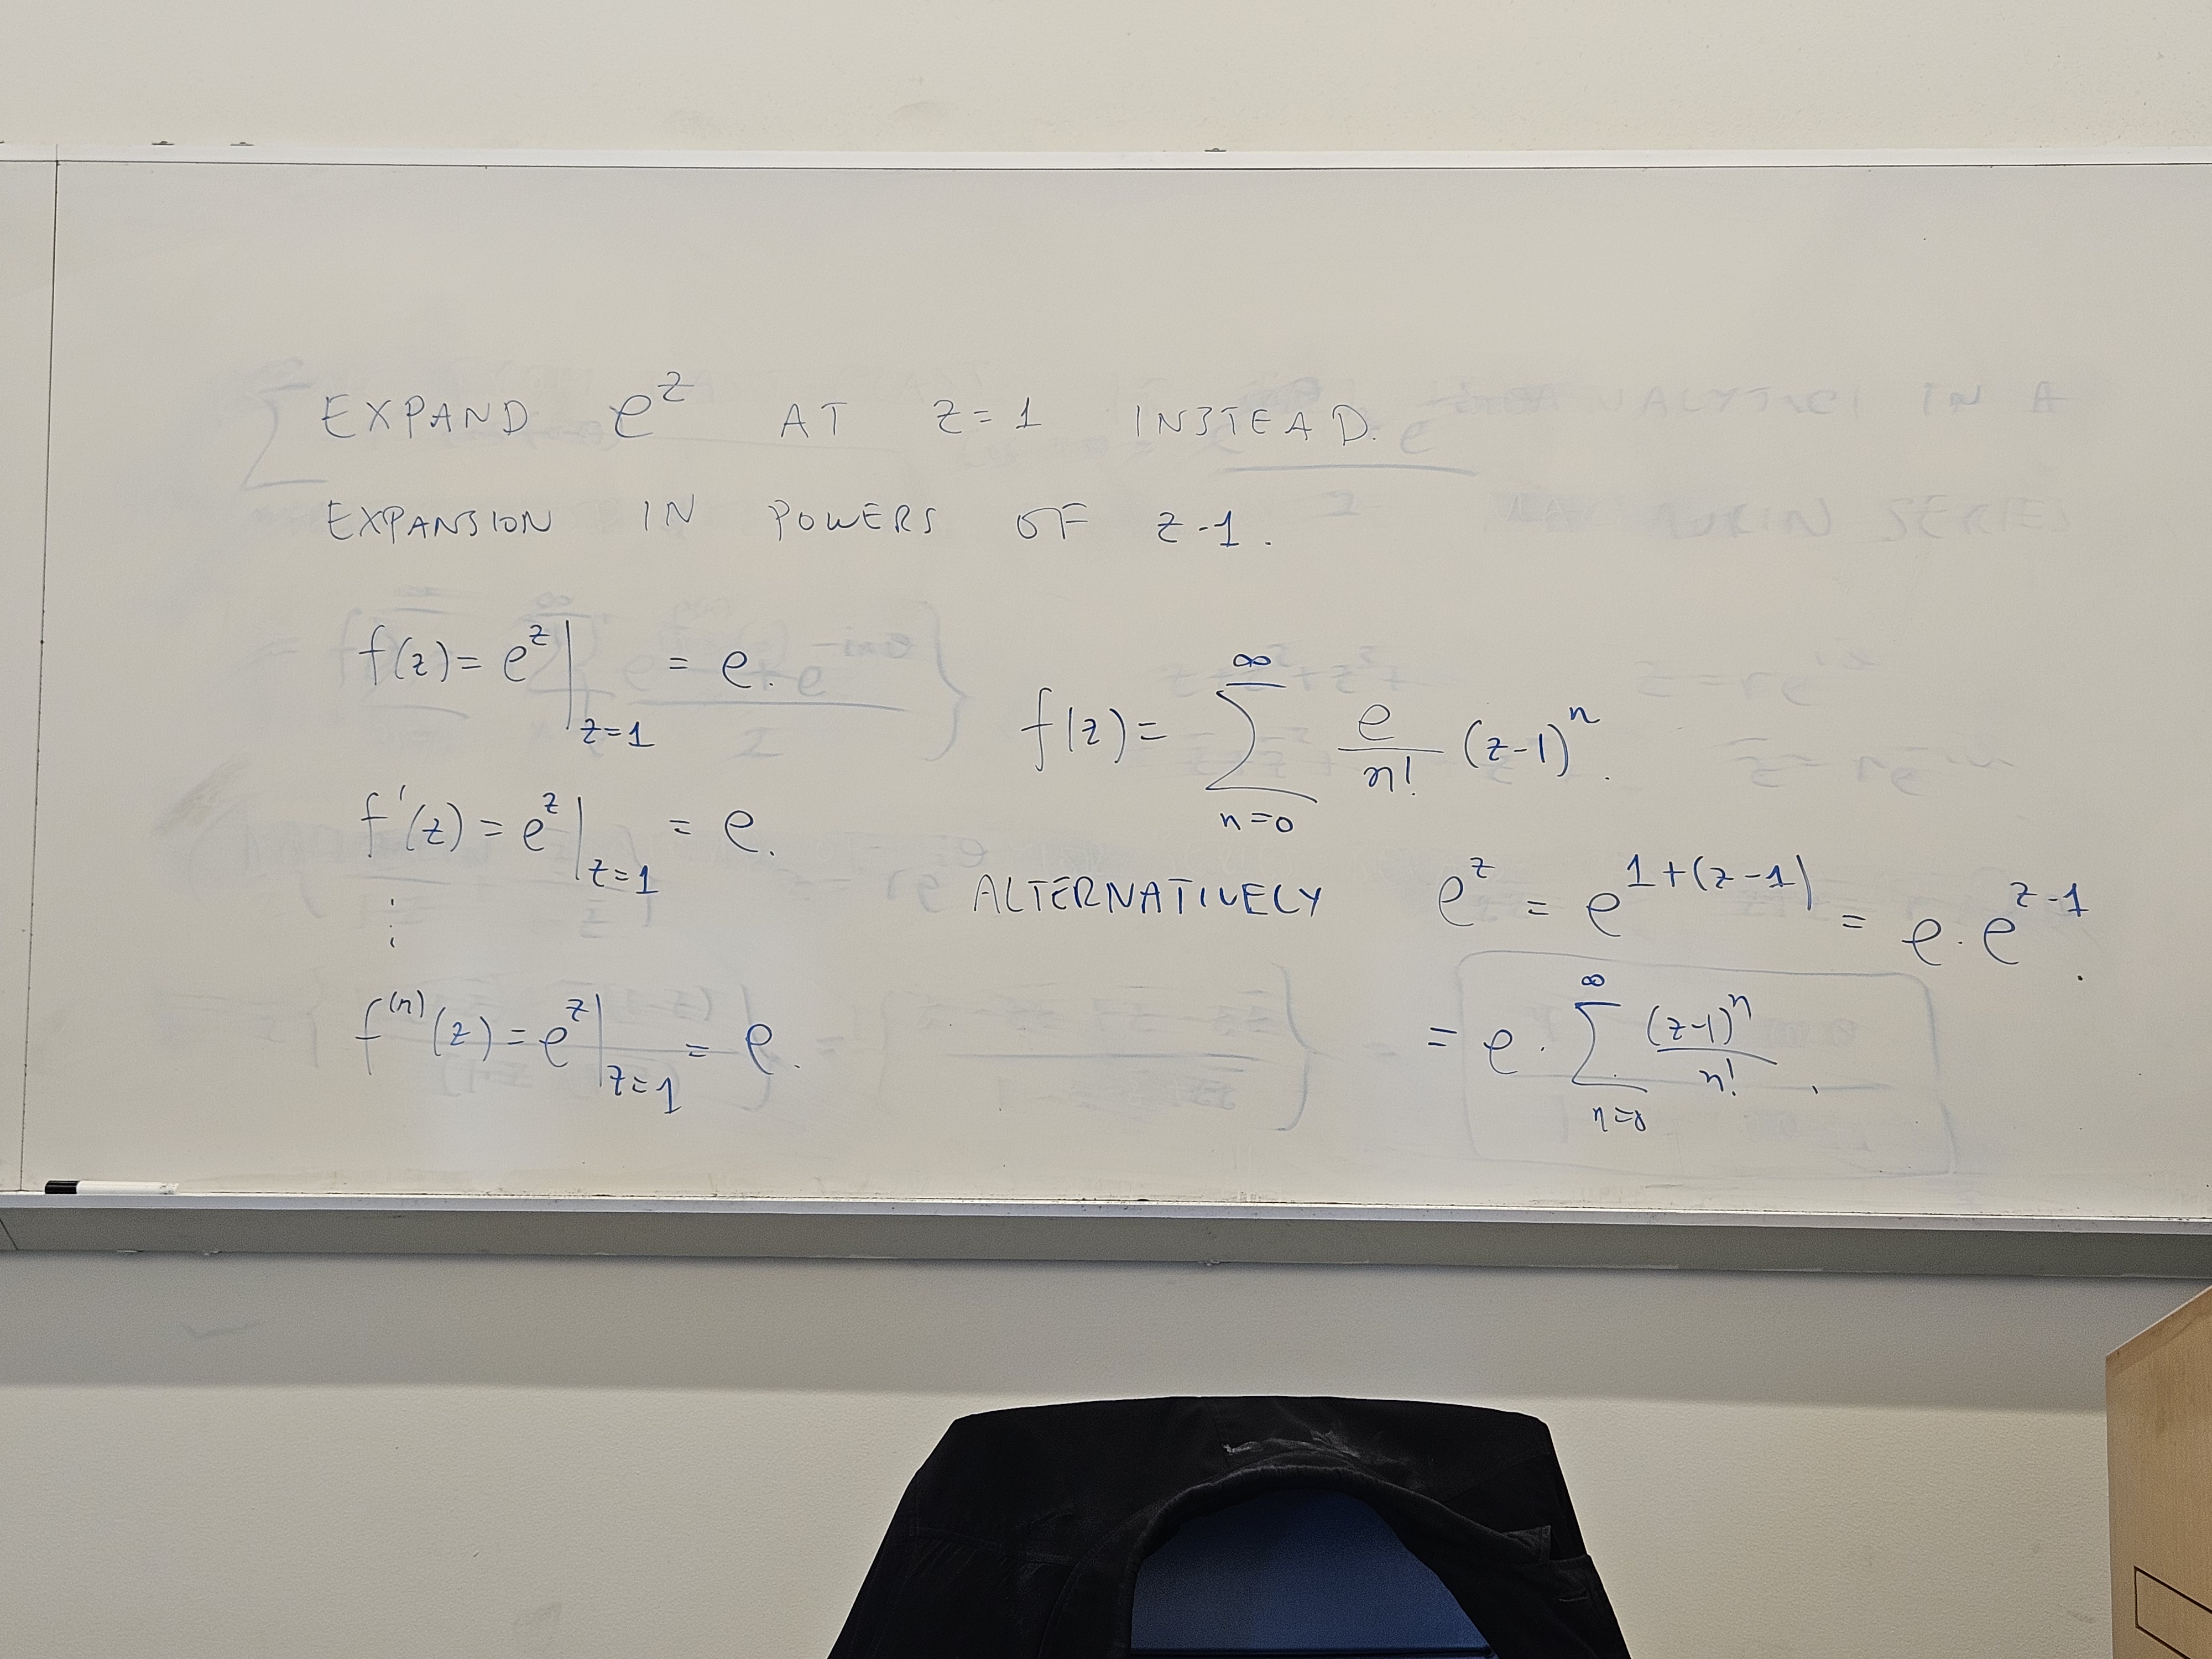 EXPAND e^z AT z=1 INSTEAD.
EXPANSION IN POWERS OF z-1.
f(z) = e^z |_{z=1} = e.
f'(z) = e^z |_{z=1} = e.
⋮
f^{(n)}(z) = e^z |_{z=1} = e.
f(z) = ∑_{n=0}^{∞} e/n! (z-1)^n.
ALTERNATIVELY e^z = e^{1+(z-1)} = e · e^{z-1}.
= e · ∑_{n=0}^{∞} (z-1)^n/n!.